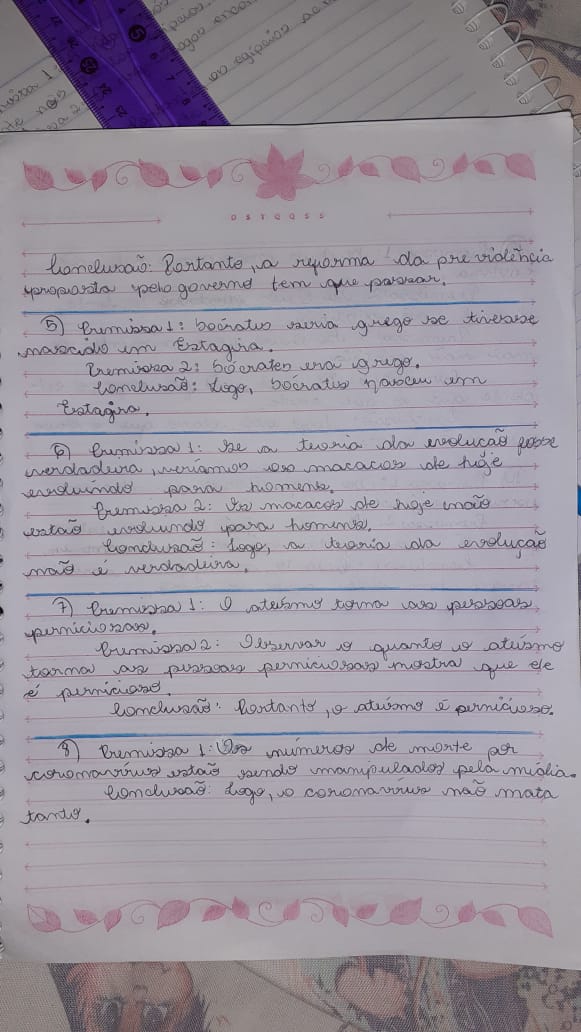 D S T Q Q S S
Conclusão: Portanto, a reforma da previdência
proposta pelo governo tem que passar.
5) Premissa 1: Sócrates seria grego se tivesse
nascido em Estagira.
Premissa 2: Sócrates era grego.
Conclusão: Logo, Sócrates nasceu em
Estagira.
6) Premissa 1: Se a teoria da evolução fosse
verdadeira, veríamos os macacos de hoje
evoluindo para homens.
Premissa 2: Os macacos de hoje não
estão evoluindo para homens.
Conclusão: Logo, a teoria da evolução
não é verdadeira.
7) Premissa 1: O ateísmo torna as pessoas
perniciosas.
Premissa 2: Observar o quanto o ateísmo
torna as pessoas perniciosas mostra que ele
é pernicioso.
Conclusão: Portanto, o ateísmo é pernicioso.
8) Premissa 1: Os números de morte por
coronavírus estão sendo manipulados pela mídia.
Conclusão: Logo, o coronavírus não mata
tanto.